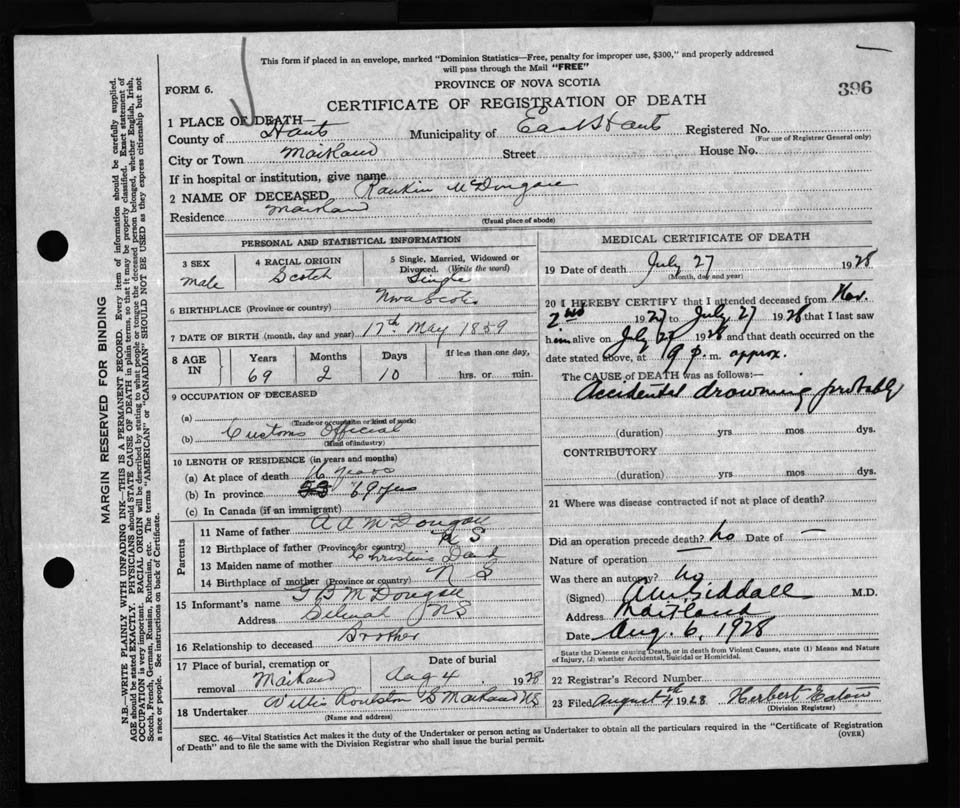 This form if placed in an envelope, marked "Dominion Statistics—Free, penalty for improper use, $300," and properly addressed
will pass through the Mail "FREE"
FORM 6.
PROVINCE OF NOVA SCOTIA
396
CERTIFICATE OF REGISTRATION OF DEATH
1 PLACE OF DEATH—
County of Hants Municipality of East Hants Registered No.
(For use of Registrar General only)
City or Town Maitland Street House No.
If in hospital or institution, give name
2 NAME OF DECEASED Rankin McDougall
Residence Maitland
(Usual place of abode)
PERSONAL AND STATISTICAL INFORMATION
3 SEX
male
4 RACIAL ORIGIN
Scotch
5 Single, Married, Widowed or
Divorced. (Write the word)
Single
6 BIRTHPLACE (Province or country) Nova Scotia
7 DATE OF BIRTH (month, day and year) 17th May 1859
8 AGE IN
Years Months Days If less than one day,
69 2 10 hrs. or min.
9 OCCUPATION OF DECEASED
(a)
(Trade or occupation or kind of work)
(b) Customs Official
(Kind of industry)
10 LENGTH OF RESIDENCE (in years and months)
(a) At place of death 16 years
(b) In province 69 yrs
(c) In Canada (if an immigrant)
Parents
11 Name of father A A McDougall
12 Birthplace of father (Province or country) N S
13 Maiden name of mother Christina
14 Birthplace of mother (Province or country) N S
15 Informant's name G B McDougall
Address Selmah NS
16 Relationship to deceased Brother
17 Place of burial, cremation or
removal Maitland
Date of burial
Aug 4 1928
18 Undertaker Willis Roulston S Maitland NS
(Name and address)
MEDICAL CERTIFICATE OF DEATH
19 Date of death July 27 1928
(Month, day and year)
20 I HEREBY CERTIFY that I attended deceased from Nov.
2nd 1927 to July 27 1928 that I last saw
him alive on July 27 1928 and that death occurred on the
date stated above, at 9 p.m. approx.
The CAUSE of DEATH was as follows:—
Accidental drowning probably
(duration) yrs mos dys.
CONTRIBUTORY
(duration) yrs. mos. dys.
21 Where was disease contracted if not at place of death?
Did an operation precede death? No Date of —
Nature of operation
Was there an autopsy? No
(Signed) AW Siddall M.D.
Address Maitland
Date Aug. 6, 1928
State the Disease causing Death, or in death from Violent Causes, state (1) Means and Nature
of Injury, (2) whether Accidental, Suicidal or Homicidal.
22 Registrar's Record Number
23 Filed August 4th 1928 Herbert Eaton
(Division Registrar)
SEC. 46—Vital Statistics Act makes it the duty of the Undertaker or person acting as Undertaker to obtain all the particulars required in the "Certificate of Registration
of Death" and to file the same with the Division Registrar who shall issue the burial permit.
(OVER)
MARGIN RESERVED FOR BINDING
N.B.—WRITE PLAINLY WITH UNFADING INK—THIS IS A PERMANENT RECORD. Every item of information should be carefully supplied.
AGE should be stated EXACTLY. PHYSICIANS should STATE CAUSE OF DEATH in plain terms, so that it may be properly classified. Exact statement of
OCCUPATION is very important. RACIAL ORIGIN will be described by stating to what people or tongue the deceased person belonged, whether English, Irish,
Scotch, French, German, Russian, Ruthenian, etc. The terms "AMERICAN" or "CANADIAN" SHOULD NOT BE USED as they express citizenship but not
a race or people. See instructions on back of Certificate.